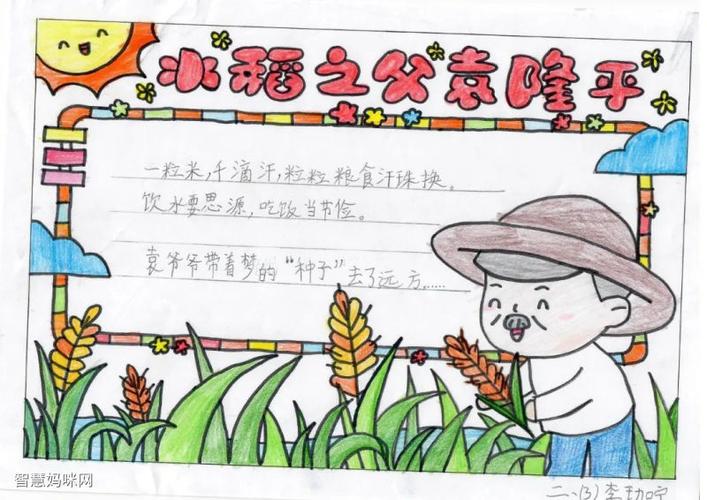 水稻之父袁隆平
一粒米,千滴汗,粒粒粮食汗珠换。
饮水要思源,吃饭当节俭。
袁爷爷带着梦的“种子”去了远方……
二、(3) 李
智慧妈咪网